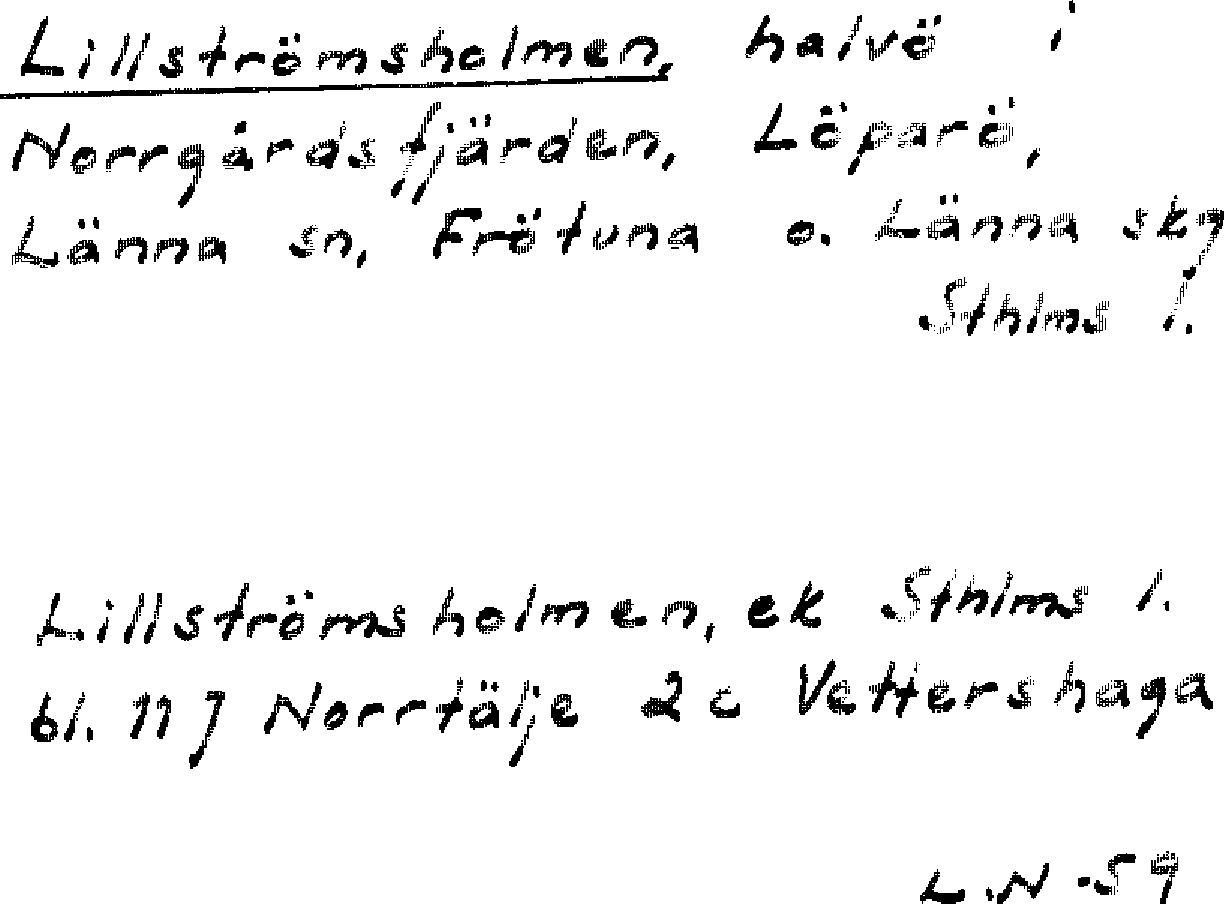 Lillströmsholmen, halvö i
Norrgårdsfjärden, Löparö,
Länna sn, Frötuna o. Länna skg
Sthlms l.
Lillströmsholmen, ek Sthlms l.
bl. 11 J Norrtälje 2 c Vettershaga
L.N -59